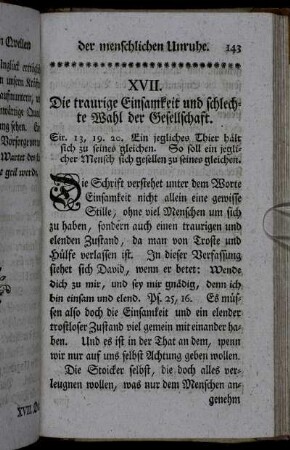 n Quellen
der menschlichen Unruhe. 143
XVII.
Die traurige Einsamkeit und schlech-
te Wahl der Gesellschaft.
Sir. 13, 19. 20. Ein jegliches Thier hält
sich zu seines gleichen. So soll ein jegli-
cher Mensch sich gesellen zu seines gleichen.
Die Schrift verstehet unter dem Worte
Einsamkeit nicht allein eine gewisse
Stille, ohne viel Menschen um sich
zu haben, sondern auch einen traurigen und
elenden Zustand, da man von Troste und
Hülfe verlassen ist. In dieser Verfassung
siehet sich David, wenn er betet: Wende
dich zu mir, und sey mir gnädig, denn ich
bin einsam und elend. Ps. 25, 16. Es müs-
sen also doch die Einsamkeit und ein elender
trostloser Zustand viel gemein mit einander ha-
ben. Und es ist in der That an dem, wenn
wir nur auf uns selbst Achtung geben wollen.
Die Stoicker selbst, die doch alles ver-
leugnen wollen, was nur dem Menschen an-
genehm